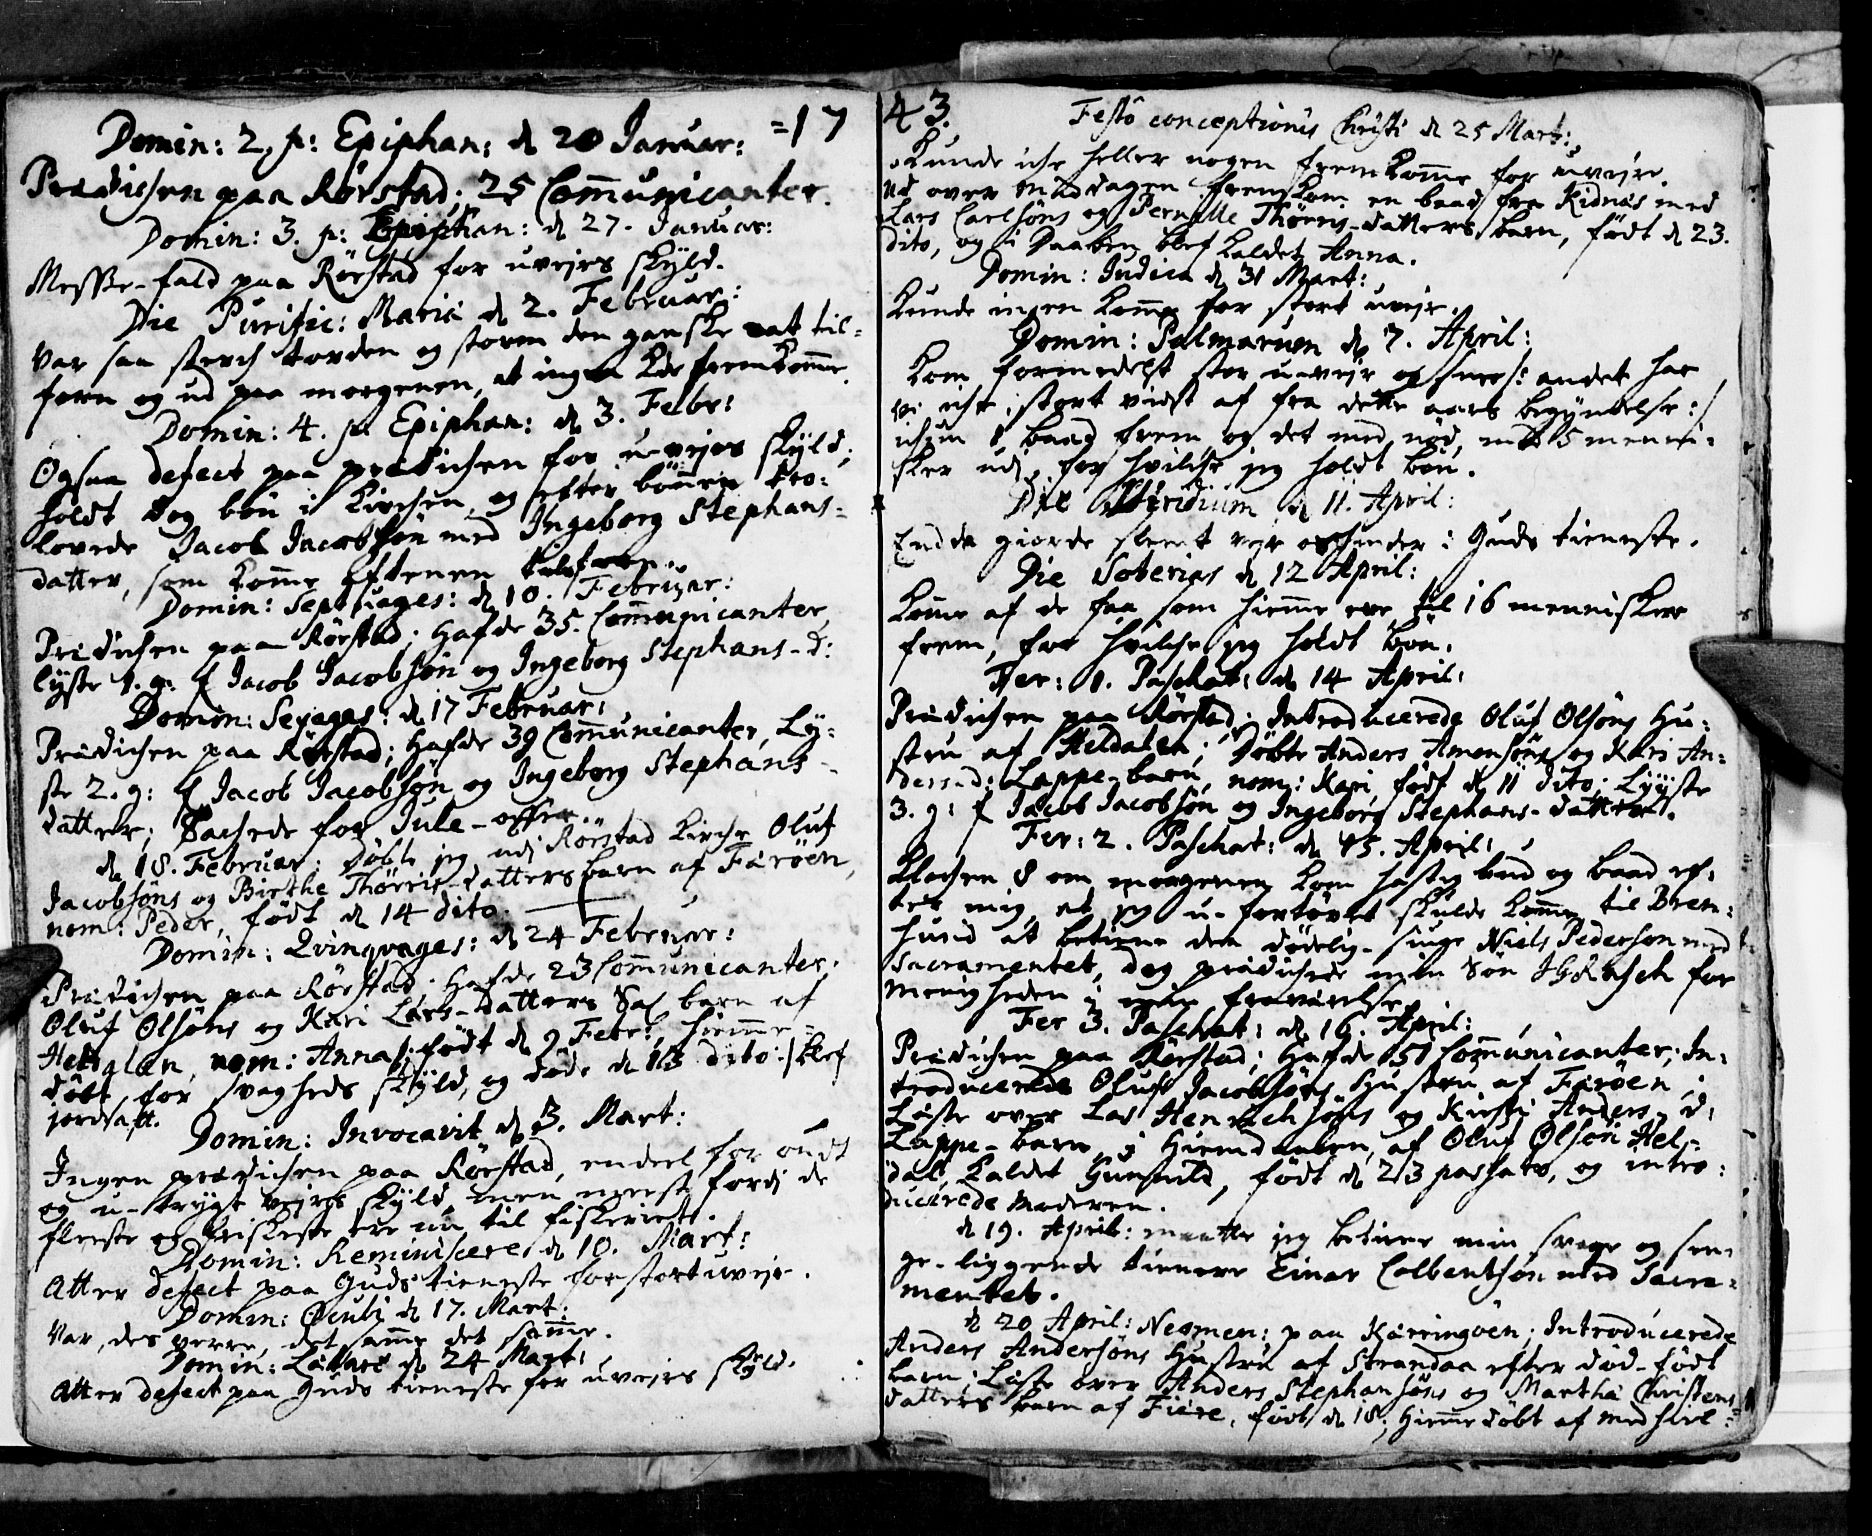 Domin: 2, p: Epiphan: d 20 Januar: =17
Prædichen paa Rørstad; 25 Communicanter.
Domin: 3. p: Epiphan: d 27. Januar:
Messe-fald paa Rørstad for uvejrs skÿld.
Die Purific: Mariæ d 2. Februar:
Var saa sterch torden og storm den ganske nat til-
forn og ud paa morgenen, at ingen kde fremkomme.
Domin: 4. p. Epiphan: d 3. Febr:
Ogsaa defect paa prædichen for u-vejrs skÿld;
holdt dog bön i Kirchen, og efter bönnen tro-
lovede Jacob Jacobsön med Ingeborg Stephans-
datter, som komme aftenen
Domin: Septuages: d 10. Februar:
Prædichen paa Rörstad; Hafde 35. Communicanter,
lÿste 1. g: f Jacob Jacobsön og Ingeborg Stephans-d:
Domin: Sexages: d 17 Februar:
Prædichen paa Rørstad; Hafde 39 Communicanter, Lÿ-
ste 2. g: f Jacob Jacobsön og Ingeborg Stephans-
datter; Tachede for Jule-offer.
d 18. Februar: döbte jeg udj Rörstad Kirche Oluf
Jacobsöns og Birthe Thörris-datters barn af Færöen,
nom: Peder, födt d 14 dito.
Domin: Qvinqvages: d 24 Februar:
Prædichen paa Rörstad; Hafde 23 Communicanter;
Oluf Olsöns og Kari Lars-datters barn af
nom: Anna /: födt d 9 Febr:, hiemme-
döbt for svagheds skÿld, og döde d 13 dito :/ blef
jordsatt.
Domin: Invocavit d 3. Mart:
Ingen prædichen paa Rörstad, endeel for ondt
og u-trÿgt vejrs skÿld, men meest fordj de
fleeste og friskeste ere nu til fiskeriet.
Domin: Reminiscere d 10. Mart:
Atter defect paa Guds tieneste for stort uvejr.
Domin: Oculi d 17. Mart:
Var, des verre, det samme det samme.
Domin: Lætare d 24 Mart:
Atter defect paa Guds tieneste for uvejrs skÿld.
43.
Festo conceptionis Christi d 25 Mart:
Kunde iche heller nogen fremkomme for uvejre.
Ud over Middagen fremkom en baad fra Kidnæs med
Lars Carlsöns og Pernille Thörris-datters barn, födt d 23.
dito, og i Daaben blef kaldet Anna.
Domin: Judica d 31 Mart:
Kunde ingen komme for stort uvejr.
Domin: Palmarum d 7. April:
Kom formedelst stor uvejr og snee /: andet har
vi iche stort vidst af fra dette aars begÿndelse :/
ichun 1 baad frem, og det med nöd, med 5 menni-
sker udj, for hvilche jeg holdt bön.
Die Viridium d 11. April:
Endda giorde slemt vejr os hinder i Guds tieneste.
Die Soterias d 12 April:
Komme af de faa som hiemme ere, til 16 mennisker
frem, for hvilche jeg holdt bön.
Fer: 1. Paschat: d 14 April:
Prædichen paa Rörstad; Introducerede Oluf Olsöns Hu-
stru af Heldalen; Döbte Anders Amonsöns og Kari An-
ders-d: Lappe-barn, nom: Kari, födt d 11 dito; Lÿste
3. g: f Jacob Jacobsön og Ingeborg Stephans-datter.
Fer: 2. Paschat: d 15. April:
Klochen 8 om morgenen kom hastig bud og baad ef-
ter mig, at jeg u-fortövet skulde komme til Brem-
hund at betiene den dödelig-siuge Niels Pederson med
Sacramentet, dog prædichede min Sön for
Menigheden i min fraværelse.
Fer 3. Paschat: d 16. April:
Prædichen paa Rörstad; Hafde 51 Communicanter; In-
troducerede Oluf Jacobsöns Hustru af Færöen;
Læste over Lars Henrichsöns og Kirsti Anders-d:
Lappe-barn, i Hiemdaaben af Oluf Olsön Hel-
dal, kaldet Gunhild, födt d 23 passato, og intro-
ducerede Moderen.
d 19. April: maatte jeg betiene min svage og sen-
ge-liggende tienere Einar Colbentsön med Sacra-
mentet.
d 20 April: paa Kærringöen; Introducerede
Anders Andersöns Hustru af Strandaa efter död-födt
barn; Læste over Anders Stephansöns og Martha Christens-
datters barn af Fiære, födt d 18, Hiemedöbt af